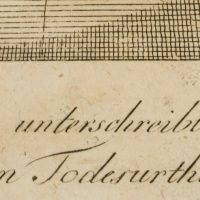 unterschreibt
n Todesurth